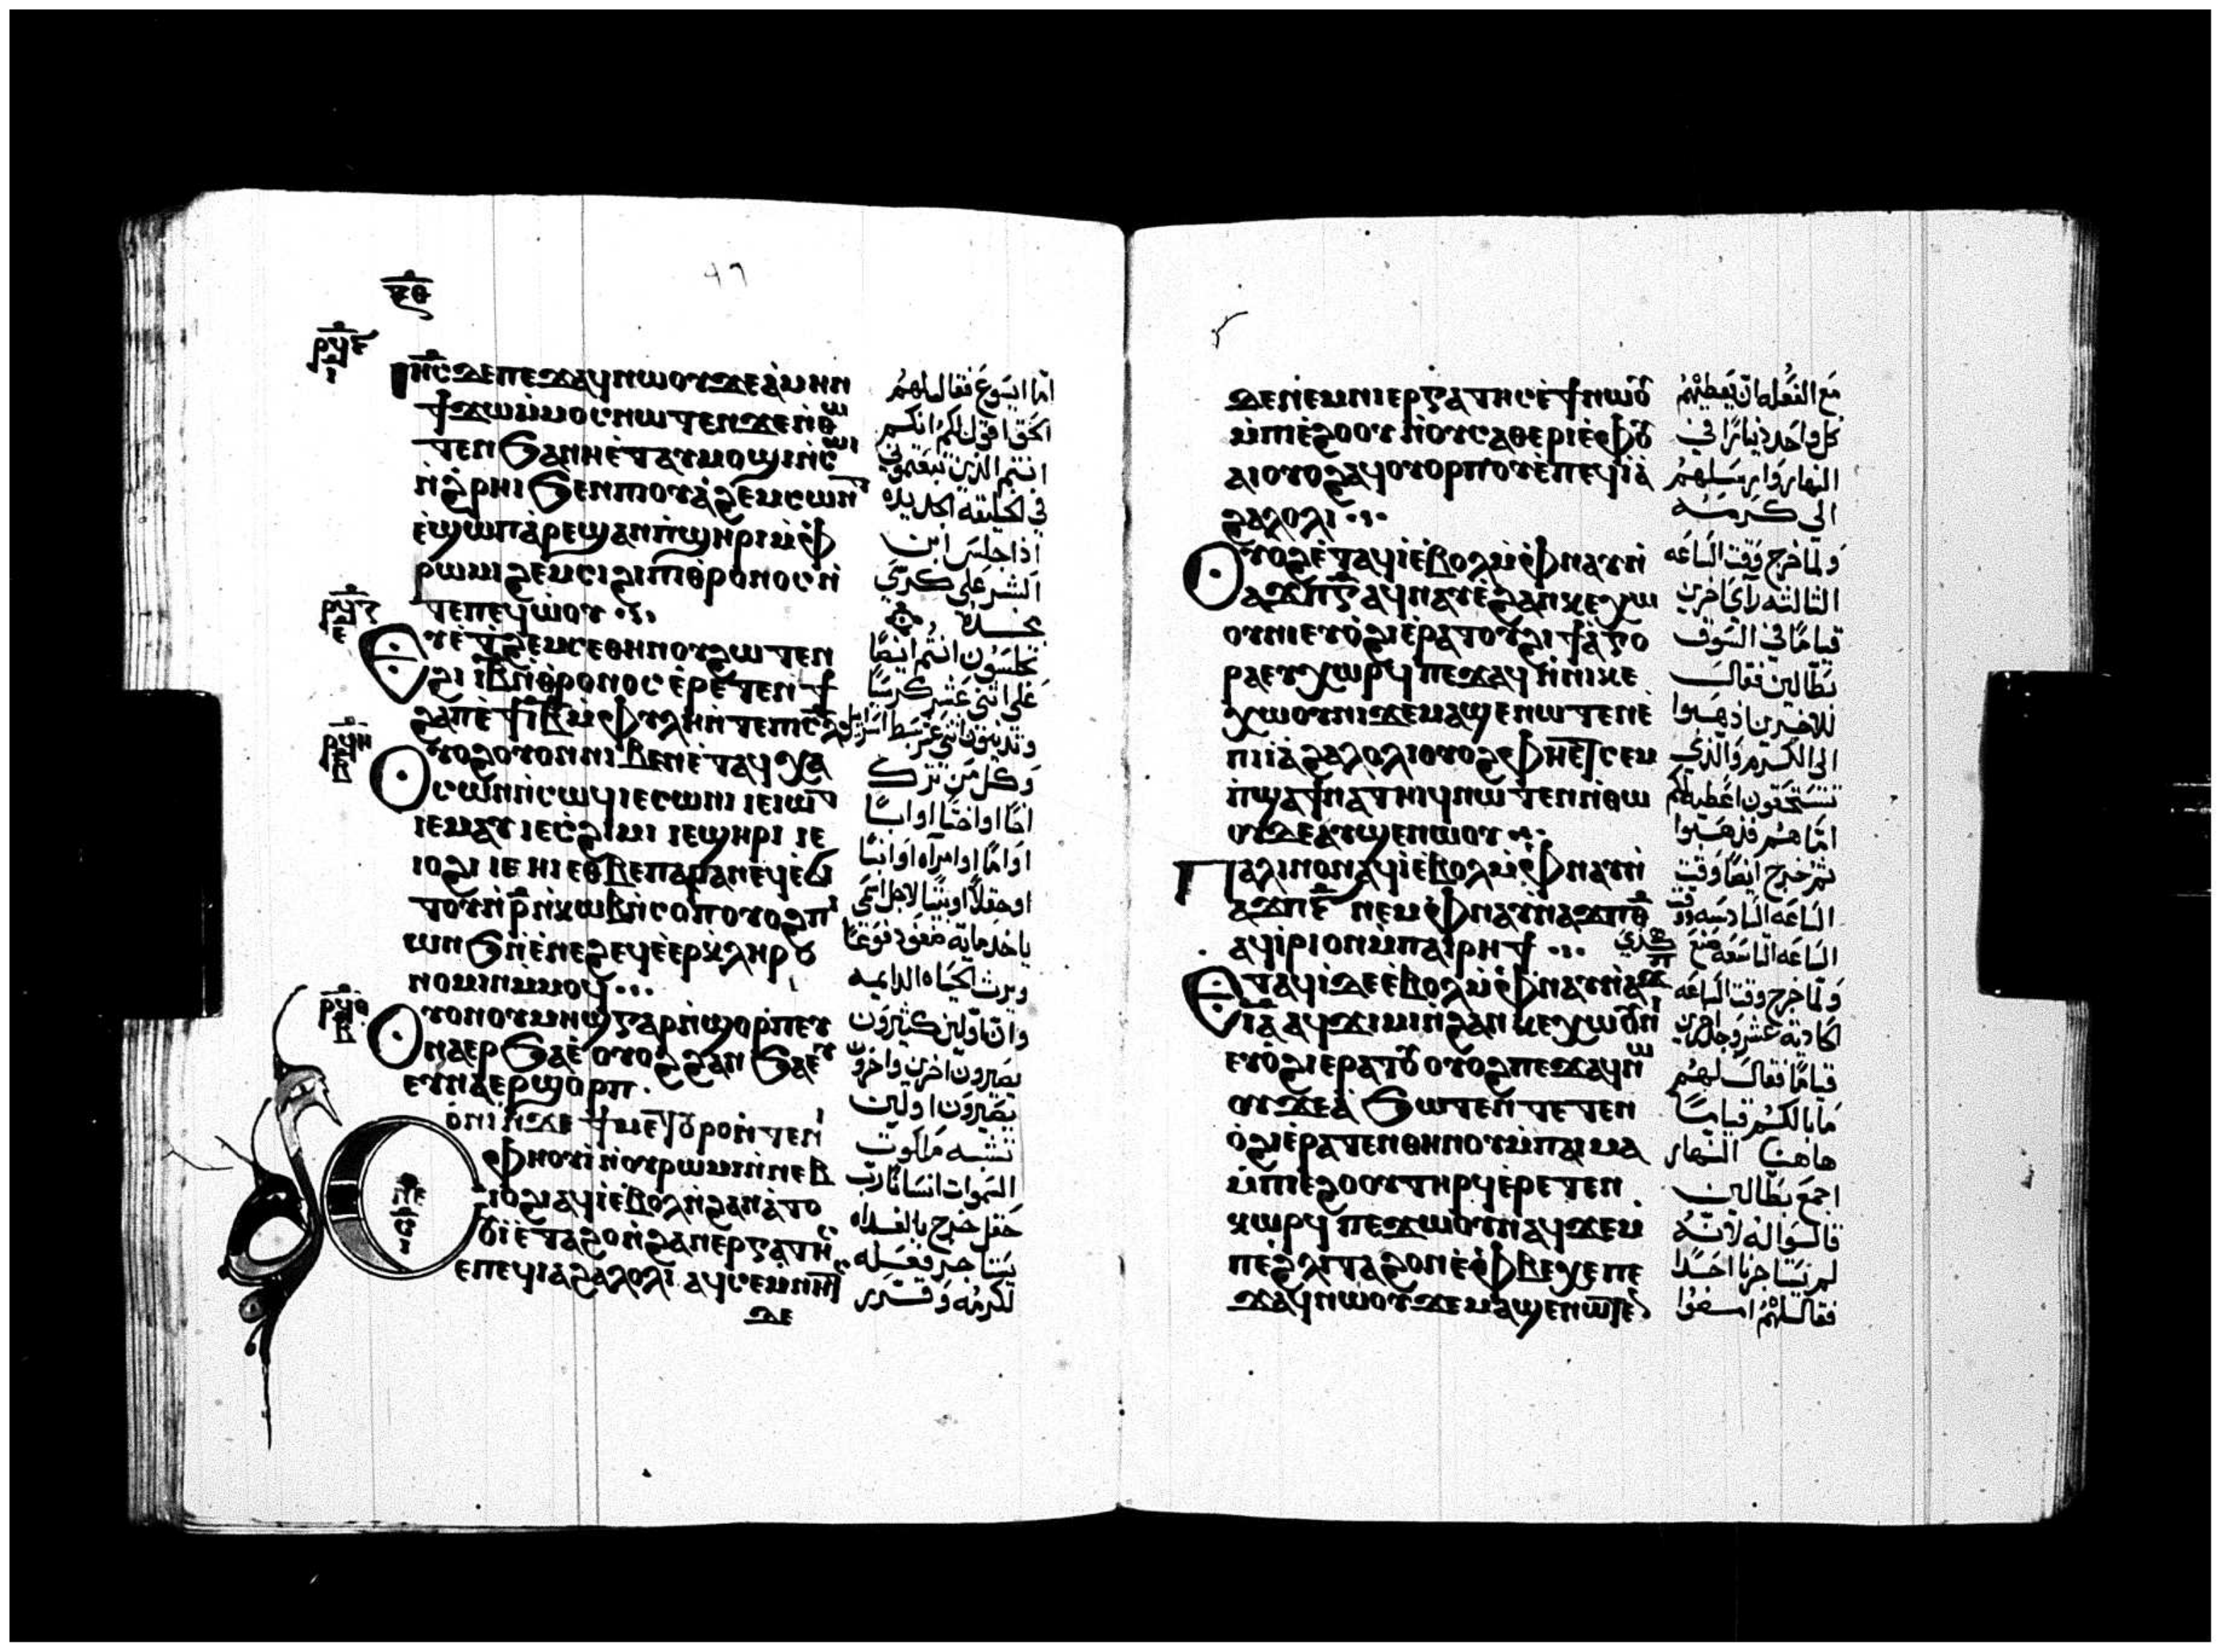 ⲝⲑ
ⲓⲏ̅ⲥ̅ ⲇⲉ ⲡⲉϫⲁϥ ⲛⲱⲟⲩ ϫⲉ ⲁ̀ⲙⲏⲛ
ϯϫⲱ ⲙ̀ⲙⲟⲥ ⲛⲱⲧⲉⲛ ϫⲉ ⲛ̀ⲑⲱ
ⲧⲉⲛ ϧⲁ ⲛⲏⲉ̀ⲧⲁⲩⲙⲟϣⲓ ⲛ̀ⲥⲱⲓ
ⲛ̀ϩ̀ⲣⲏⲓ ϧⲉⲛ ⲡⲓⲟⲩⲁ̀ϩⲉⲙⲥⲱⲛⲧ
ⲉ̀ϣⲱⲡ ⲁ̀ⲣⲉϣⲁⲛ ⲡ̀ϣⲏⲣⲓ ⲙ̀ⲫ
ⲣⲱⲙⲓ ϩⲉⲙⲥⲓ ϩⲓ ⲡⲓⲑⲣⲟⲛⲟⲥ ⲛ̀
ⲧⲉ ⲡⲉϥⲱ̀ⲟⲩ
ⲉⲣⲉⲧⲉⲛⲉ̀ϩⲉⲙⲥⲉ ⲑⲏⲛⲟⲩ ϩⲱⲧⲉⲛ
ϩⲓ ⲓ̅ⲃ̅ ⲛ̀ⲑⲣⲟⲛⲟⲥ ⲉ̀ⲣⲉⲧⲉⲛϯ
ϩⲁⲡ ⲉ̀ϯⲓ̅ⲃ̅ ⲙ̀ⲫⲩⲗⲏ ⲛ̀ⲧⲉ ⲡⲓⲥ̅ⲗ̅
ⲟⲩⲟϩ ⲟⲩⲟⲛ ⲛⲓⲃⲉⲛ ⲉ̀ⲧⲁϥⲭⲁ
ⲥⲟⲛ ⲛ̀ⲥⲱϥ ⲓⲉ ⲥⲱⲛⲓ ⲓⲉ ⲓⲱⲧ
ⲓⲉ ⲙⲁⲩ ⲓⲉ ⲥ̀ϩⲓⲙⲓ ⲓⲉ ϣⲏⲣⲓ ⲓⲉ
ⲓⲟϩⲓ ⲓⲉ ⲏⲓ ⲉⲑⲃⲉ ⲡⲁⲣⲁⲛ ⲉϥⲉ̀ϭⲓ
ⲧⲟⲩ ⲛ̀ⲣ̅ ⲛ̀ⲕⲱⲃ ⲛ̀ⲥⲟⲡ ⲟⲩⲟϩ ⲡⲓ
ⲱⲛϧ ⲛ̀ⲉ̀ⲛⲉϩ ⲉϥⲉ̀ⲉⲣⲕⲗⲏⲣⲟ
ⲛⲟⲙⲓⲛ ⲙ̀ⲙⲟϥ
ⲟⲩⲟⲛ ⲟⲩⲙⲏϣ ⲅⲁⲣ ⲛ̀ϣⲟⲣⲡ ⲉⲩ
ⲛⲁⲉⲣϧⲁⲉ̀ ⲟⲩⲟϩ ϩⲁⲛϧⲁⲉⲩ
ⲉⲩⲛⲁⲉⲣϣⲟⲣⲡ
ⲥ̀ⲟ̀ⲛⲓ ⲛ̀ϫⲉ ϯⲙⲉⲧⲟⲩⲣⲟ ⲛ̀ⲧⲉ ⲛⲓ
ⲫⲏⲟⲩⲓ̀ ⲛ̀ⲟⲩⲣⲱⲙⲓ ⲛ̀ⲛⲏⲃ
ⲓⲟϩⲓ ⲁϥⲓ̀ ⲉ̀ⲃⲟⲗ ⲛ̀ϩⲁⲛⲁ̀ⲧⲟ
ⲟⲩⲓ̀ ⲉ̀ⲑⲁϩⲟ ⲛ̀ϩⲁⲛⲉⲣⲅⲁⲧⲏⲥ
ⲉⲡⲉϥⲓⲁϩⲁⲗⲟⲗⲓ ⲁϥⲥⲉⲙⲛⲏⲧⲥ
ⲇⲉ
اما ايسوع فقال لهم
الحق اقول لكم انكم
انتم الذين تبعتموني
في الخليقه الجديده
اذا جلس ابن
البشر على كرسي
مجده
تجلسون انتم ايضا
على اثني عشر كرسيا
وتدينون اثني عشر سبط اسرايل
وكل من ترك
اخا او اختا او ابا
او اما او امراه او ابنا
او حقلا او بيتا لاجل اسمي
ياخذ مايه ضعف
ويرث الحياه الدايمه
وان اولين كثيرون
يصيرون اخرين واخرون
يصيرون اولين
تشبه ملكوت
السموات انسانا رب
حقل خرج بالغداه
يستاجر فعله
لكرمه وقرر
ϫⲉⲛⲉⲙ ⲛⲓⲉⲣⲅⲁⲧⲏⲥ ⲉ̀ϯ ⲛⲱⲟⲩ
ⲙ̀ⲡⲓⲉ̀ϩⲟⲟⲩ ⲛ̀ⲟⲩⲥⲁⲑⲉⲣⲓ ⲉ̀ⲫⲟⲩ
ⲁⲓ ⲟⲩⲟϩ ⲁϥⲟⲩⲟⲣⲡⲟⲩ ⲉ̀ⲡⲉϥⲓⲁ̀
ϩⲁⲗⲟⲗⲓ
ⲟⲩⲟϩ ⲉ̀ⲧⲁϥⲓ̀ ⲉ̀ⲃⲟⲗ ⲙ̀ⲫⲛⲁⲩ ⲛ̀
ⲁϫⲡ ⲅ̅ ⲁϥⲛⲁⲩ ⲉ̀ϩⲁⲛⲕⲉⲭⲱ
ⲟⲩⲛⲓ ⲉⲩⲟ̀ϩⲓ ⲉ̀ⲣⲁⲧⲟⲩ ϩⲓ ϯⲁ̀ⲅⲟ
ⲣⲁ ⲉⲩⲭⲱⲣϥ ⲡⲉϫⲁϥ ⲛ̀ⲛⲓⲕⲉ
ⲭⲱⲟⲩⲛⲓ ϫⲉ ⲙⲁϣⲉⲛⲱⲧⲉⲛ ⲉ̀
ⲡⲓⲓⲁ̀ϩⲁⲗⲟⲗⲓ ⲟⲩⲟϩ ⲫⲏⲉⲧⲥⲉⲙ
ⲡ̀ϣⲁ ϯⲛⲁⲧⲏⲓϥ ⲛⲱⲧⲉⲛ ⲛ̀ⲑⲱ
ⲟⲩ ⲇⲉ ⲁⲩϣⲉⲛⲱⲟⲩ
ⲡⲁⲗⲓⲛ ⲟⲛ ⲁϥⲓ̀ ⲉ̀ⲃⲟⲗ ⲙ̀ⲫⲛⲁⲩ ⲛ̀
ⲁϫⲡ ⲋ̅ ⲛⲉⲙ ⲫⲛⲁⲩ ⲛ̀ⲁϫⲡ ⲑ̅
ⲁϥⲓ̀ⲣⲓ ⲟⲛ ⲙ̀ⲡⲁⲓⲣⲏϯ
ⲉⲧⲁϥⲓ̀ ⲇⲉ ⲉ̀ⲃⲟⲗ ⲙ̀ⲫⲛⲁⲩ ⲛ̀ⲁϫⲡ
ⲓ̅ⲁ̅ ⲁϥϫⲓⲙⲓ ⲛ̀ϩⲁⲛⲕⲉⲭⲱⲟⲩⲛⲓ
ⲉⲩⲟ̀ϩⲓ ⲉⲣⲁⲧⲟⲩ ⲟⲩⲟϩ ⲡⲉϫⲁϥ ⲛⲱ
ⲟⲩ ϫⲉ ⲁ̀ϧⲱⲧⲉⲛ ⲧⲉⲧⲉⲛ
ⲟ̀ϩⲓ ⲉ̀ⲣⲁⲧⲉⲛ ⲑⲏⲛⲟⲩ ⲙ̀ⲡⲁⲓⲙⲁ
ⲙ̀ⲡⲓⲉ̀ϩⲟⲟⲩ ⲧⲏⲣϥ ⲉ̀ⲣⲉⲧⲉⲛ
ⲕⲱⲣϥ ⲡⲉϫⲱⲟⲩ ⲛⲁϥ ϫⲉ ⲙ̀
ⲡⲉϩ̀ⲗⲓ ⲧⲁϩⲟⲛ ⲉ̀ⲫⲃⲉⲭⲉ ⲡⲉ
ϫⲁϥ ⲛⲱⲟⲩ ϫⲉ ⲙⲁϣⲉⲛⲱⲧⲉⲛ
مع الفعله ان يعطيهم
كل واحد دينارا في
النهار وارسلهم
الى كرمه
ولما خرج وقت الساعه
الثالثه راى اخرين
قياما في السوق
بطالين فقال
للاخرين اذهبوا
الى الكرم والذي
تستحقون اعطيه لكم
اما هم فذهبوا
ثم خرج ايضا وقت
الساعه السادسه ووقت
الساعه التاسعه صنع كذي
ولما خرج وقت الساعه
الحاديه عشر وجد اخرين
قياما فقال لهم
ما بالكم قياما
هاهنا النهار
اجمع بطالين
قالوا له لانه
لم يستاجرنا احدا
فقال لهم امضوا